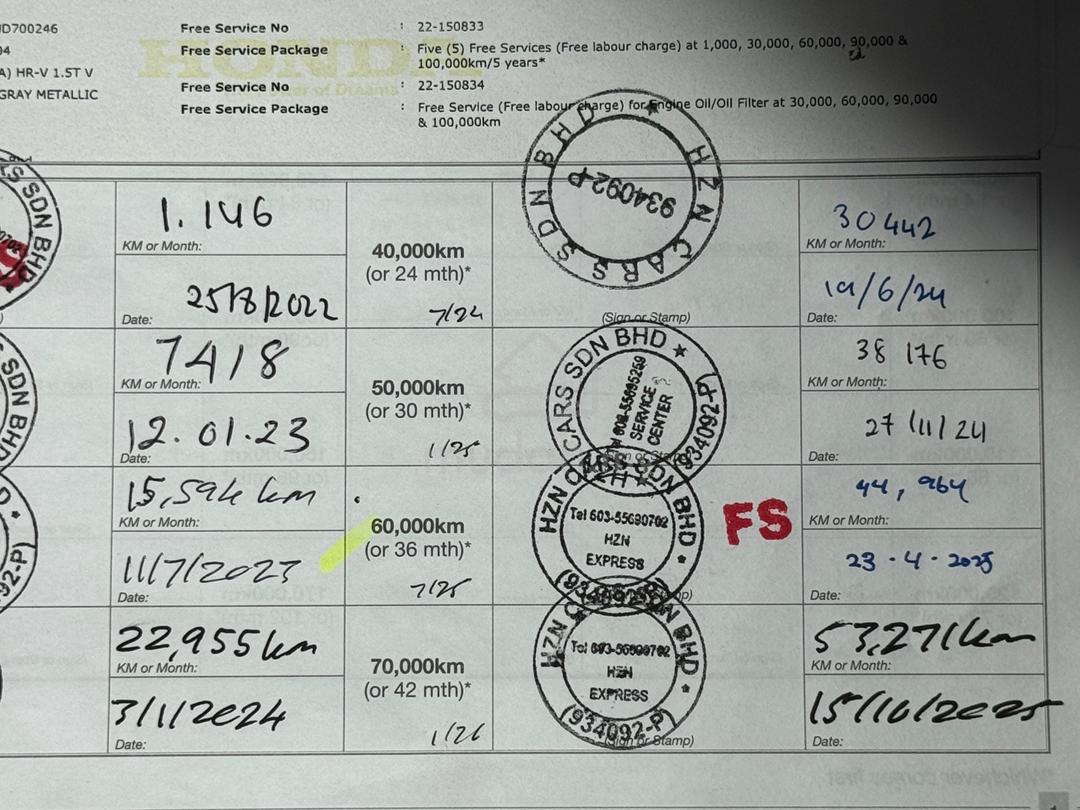 ID700246
04
A) HR-V 1.5T V
GRAY METALLIC
Free Service No : 22-150833
Free Service Package : Five (5) Free Services (Free labour charge) at 1,000, 30,000, 60,000, 90,000 &
100,000km/5 years*
Free Service No : 22-150834
Free Service Package : Free Service (Free labour charge) for Engine Oil/Oil Filter at 30,000, 60,000, 90,000
& 100,000km
HONDA
Power of Dreams
1.146
KM or Month:
25/8/2022
Date:
40,000km
(or 24 mth)*
7/24
HZN CARS SDN BHD ★
934092-P
(Sign or Stamp)
30442
KM or Month:
19/6/24
Date:
7418
KM or Month:
12.01.23
Date:
50,000km
(or 30 mth)*
1/25
CARS SDN BHD ★
Tel 603-55695259
SERVICE
CENTER
934092-P)
38 176
KM or Month:
27/11/24
Date:
15,594 km
KM or Month:
11/7/2023
Date:
60,000km
(or 36 mth)*
7/25
HZN CARS SDN BHD
Tel 603-55690702
HZN
EXPRESS
(934092-P)
FS
44,964
KM or Month:
23-4-2025
Date:
22,955km
KM or Month:
3/1/2024
Date:
70,000km
(or 42 mth)*
1/26
HZN CARS SDN BHD
Tel 603-55690702
HZN
EXPRESS
(934092-P)
(Sign or Stamp)
53,271km
KM or Month:
15/10/2025
Date:
SDN BHD
SDN BHD
92-P)
*Whichever comes first